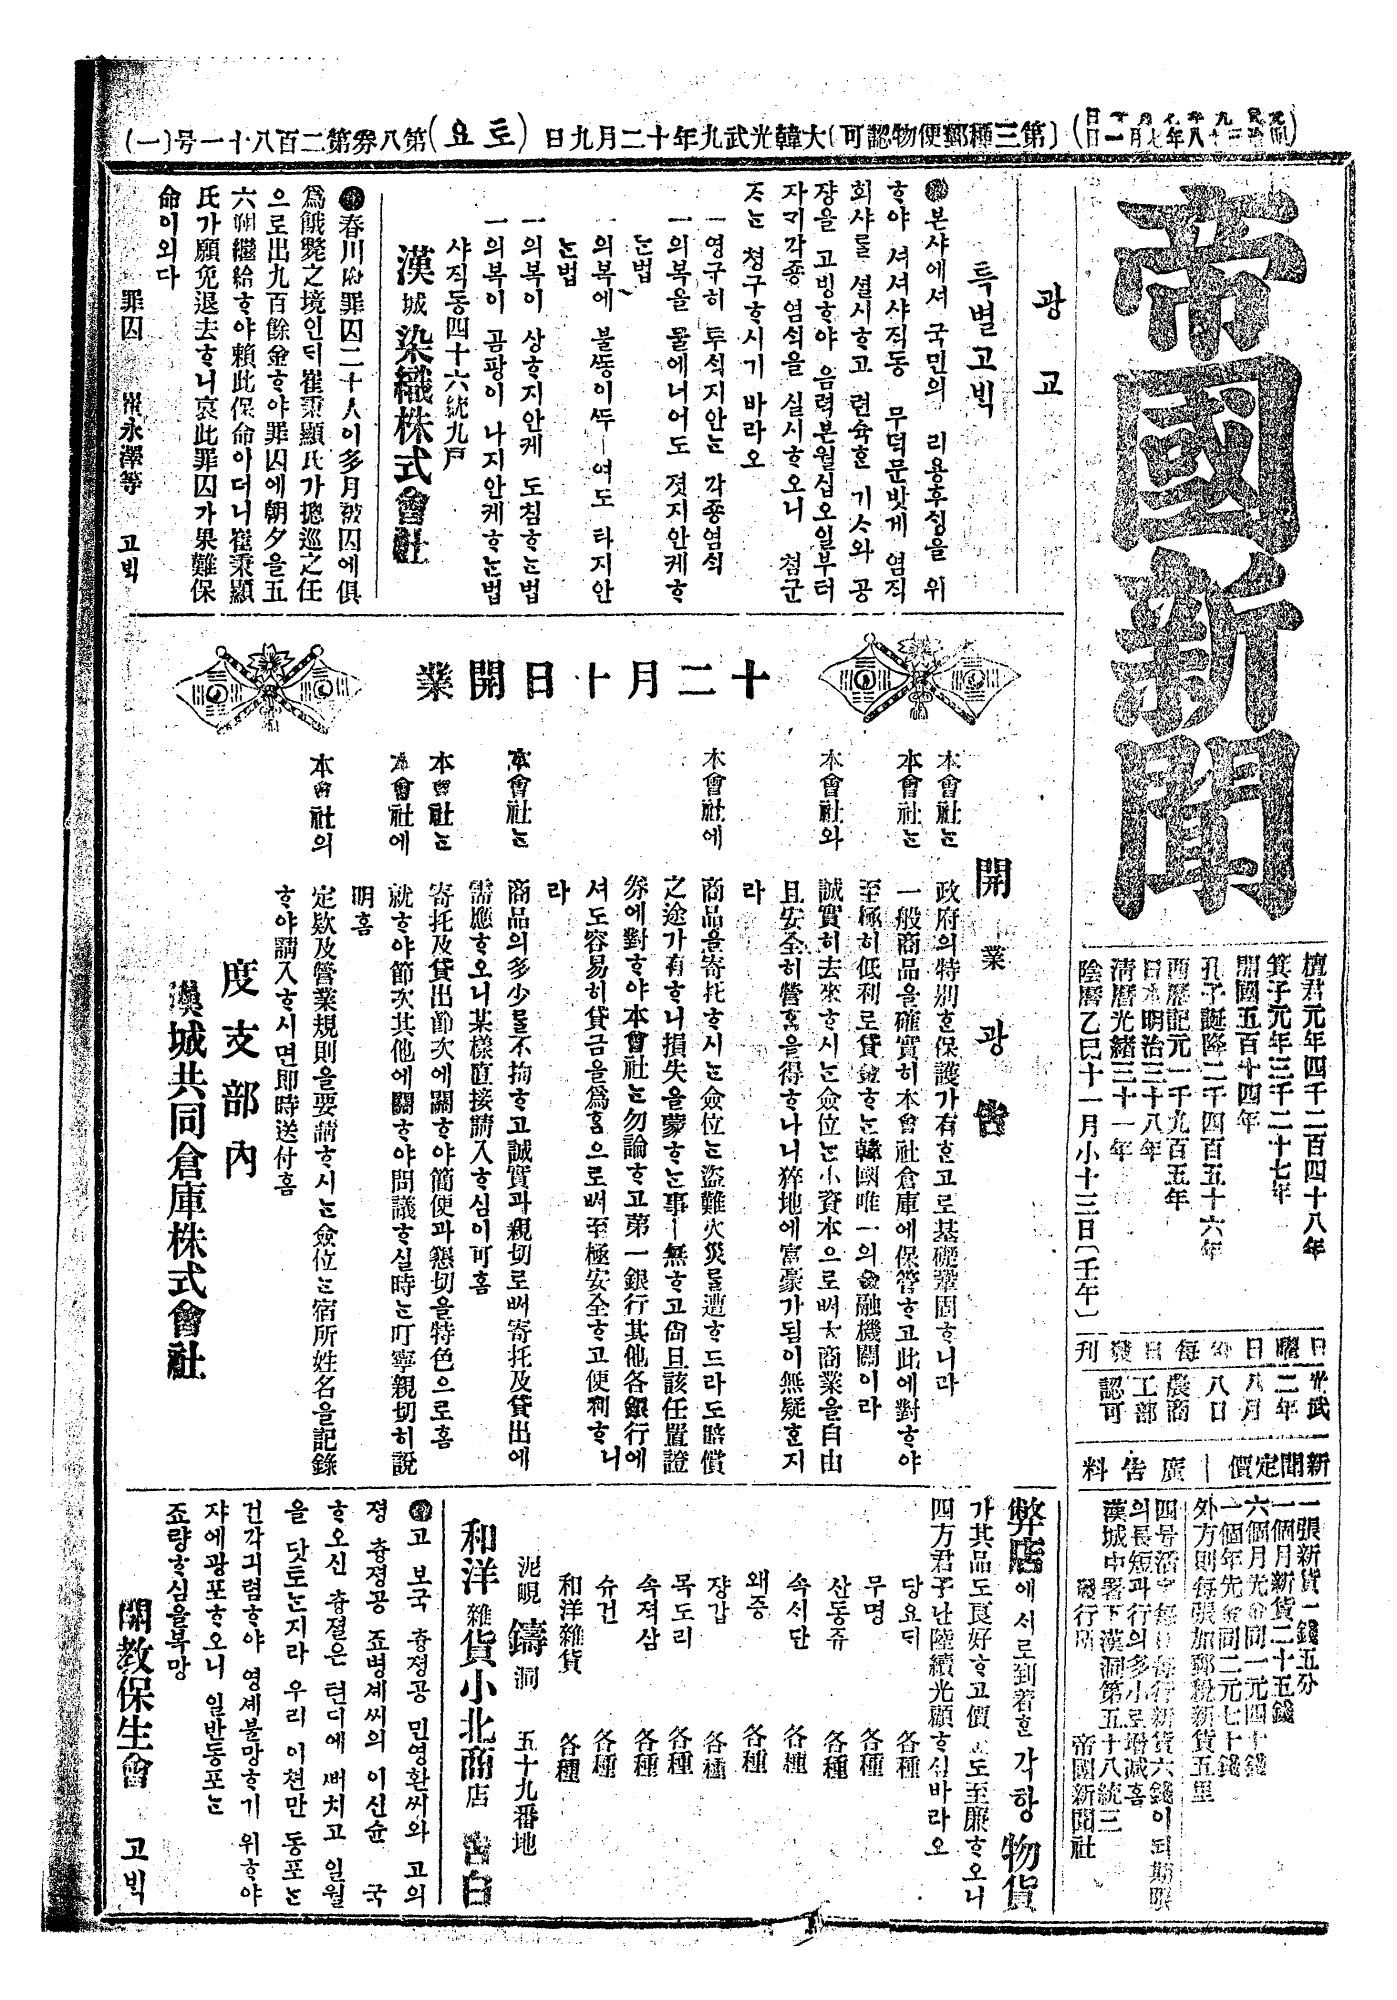 大韓光武九年十二月九日 (토요) 第八券第二百八十一号 (一)
〔第三種郵便物認可〕
帝國新聞
檀君元年四千二百四十八年
箕子元年三千二十七年
開國五百十四年
孔子誕降二千四百五十六年
西曆記元一千九百五年
日本明治三十八年
清曆光緒三十一年
陰曆乙巳十一月小十三日〔壬午〕
日曜日外每日發刊
光武二年八月八日
農商工部認可
新聞定價
一張新貨一錢五分
一個月新貨二十五錢
六個月先金同一元四十錢
一個年先金同二元七十錢
外方則每張加郵稅新貨五里
廣告料
四号活字每日每行新貨六錢이되期限
의長短과行의多小로增減홈
漢城中署下漢洞第五十八統三
發行所 帝國新聞社
광고
특별고빅
본샤에셔 국민의 리용후싱을 위
ᄒᆞ야 셔셔샤직동 무덕문밧게 염직
회샤를 셜시ᄒᆞ고 련슉ᄒᆞᆫ 기ᄉᆞ와 공
쟝을 고빙ᄒᆞ야 음력본월십오일부터
자긔각죵 염ᄉᆡᆨ을 실시ᄒᆞ오니 쳠군
ᄌᆞᄂᆞᆫ 쳥구ᄒᆞ시기 바라오
一 영구히 투ᄉᆡᆨ지안ᄂᆞᆫ 각죵염ᄉᆡᆨ
一 의복을 물에너어도 졋지안케ᄒᆞ
ᄂᆞᆫ법
一 의복에 불ᄯᅩᆼ이ᄯᅱ여도 타지안
ᄂᆞᆫ법
一 의복이 상ᄒᆞ지안케 도침ᄒᆞᄂᆞᆫ법
一 의복이 곰팡이 나지안케ᄒᆞᄂᆞᆫ법
샤직동四十六統九戶
漢城染織株式會社
春川府罪囚二十人이多月被囚에俱
爲餓斃之境인ᄃᆡ崔秉顯氏가摠巡之任
으로出九百餘金ᄒᆞ야罪囚에朝夕을五
六朔繼給ᄒᆞ야賴此保命아더니崔秉顯
氏가願免退去ᄒᆞ니哀此罪囚가果難保
命이외다
罪囚 崔永澤等 고빅
十二月十日開業
開業광告
本會社ᄂᆞᆫ 政府의特別ᄒᆞᆫ保護가有ᄒᆞᆫ고로基礎鞏固ᄒᆞ니라
本會社ᄂᆞᆫ 一般商品을確實히本會社倉庫에保管ᄒᆞ고此에對ᄒᆞ야
至極히低利로貸金ᄒᆞᄂᆞᆫ韓國唯一의金融機關이라
本會社와 誠實히去來ᄒᆞ시ᄂᆞᆫ僉位ᄂᆞᆫ小資本으로ᄡᅥ大商業을自由
且安全히營홈을得ᄒᆞ나니猝地에富豪가됨이無疑ᄒᆞᆫ지
라
本會社에 商品을寄托ᄒᆞ시ᄂᆞᆫ僉位ᄂᆞᆫ盜難火災를遭ᄒᆞ드라도賠償
之途가有ᄒᆞ니損失을蒙ᄒᆞᄂᆞᆫ事ㅣ無ᄒᆞ고尙且該任置證
券에對ᄒᆞ야本會社ᄂᆞᆫ勿論ᄒᆞ고第一銀行其他各銀行에
셔도容易히貸금을爲홈으로ᄡᅥ至極安全ᄒᆞ고便利ᄒᆞ니
라
本會社ᄂᆞᆫ 商品의多少를不拘ᄒᆞ고誠實과親切로ᄡᅥ寄托及貸出에
需應ᄒᆞ오니某樣直接請入ᄒᆞ심이可홈
本會社ᄂᆞᆫ 寄托及貸出節次에關ᄒᆞ야簡便과懇切을特色으로홈
本會社에 就ᄒᆞ야節次其他에關ᄒᆞ야問議ᄒᆞ실時ᄂᆞᆫ叮寧親切히說
明홈
本會社의 定欵及營業規則을要請ᄒᆞ시ᄂᆞᆫ僉位ᄂᆞᆫ宿所姓名을記錄
ᄒᆞ야請入ᄒᆞ시면即時送付홈
度支部內
漢城共同倉庫株式會社
弊店에서로到着ᄒᆞᆫ각항物貨
가其品도良好ᄒᆞ고價도至廉ᄒᆞ오니
四方君子난陸續光顧ᄒᆞ심바라오
당요ᄃᆡ 各種
무명 各種
산동쥬 各種
속셔단 各種
왜증 各種
쟝갑 各種
목도리 各種
속젹삼 各種
슈건 各種
和洋雜貨 各種
泥峴 鑄洞 五十九番地
和洋雜貨小北商店 告白
고 보국 츙졍공 민영환씨와 고의
졍 츙졍공 죠병셰씨의 이신슌 국
ᄒᆞ오신 츙졀은 텬디에 ᄲᅥ치고 일월
을 닷토ᄂᆞᆫ지라 우리 이쳔만 동포ᄂᆞᆫ
건각긔렴ᄒᆞ야 영셰불망ᄒᆞ기 위ᄒᆞ야
쟈에광포ᄒᆞ오니 일반동포ᄂᆞᆫ
죠량ᄒᆞ심을복망
開教保生會 고빅